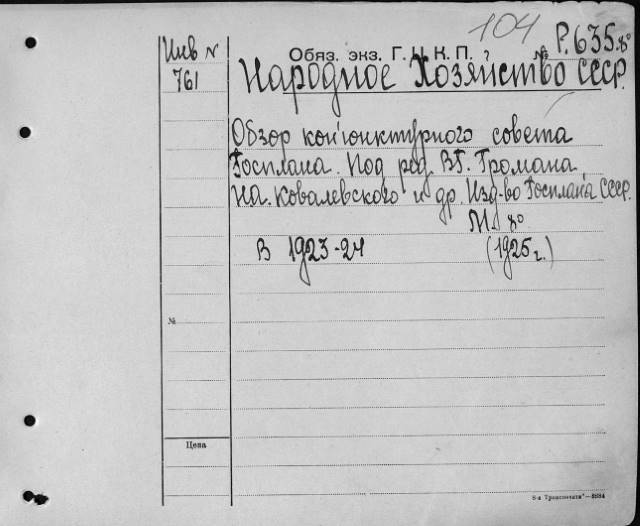 104
Инв №
Обяз. экз. Г.Ц.К.П. № Р.635.8°
761
Народное Хозяйство СССР.
Обзор конъюнктурного совета
Госплана. Под ред. В.Г. Громана,
Н.А. Ковалевского и др. Изд-во Госплана СССР.
М. 8°
В 1923-24 (1925 г.)
№
Цена